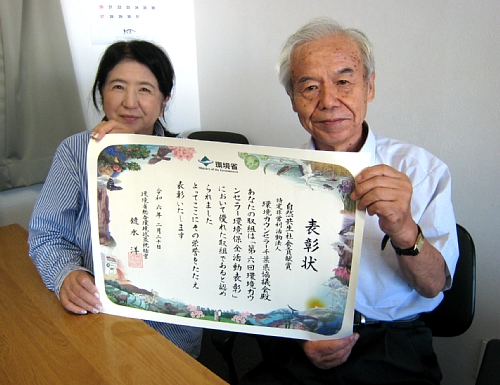 環境省
Ministry of the Environment
表彰状
自然共生社会貢献賞
特定非営利活動法人
環境カウンセラー千葉県協議会殿
あなたの取組は「第六回環境カウ
ンセラー環境保全活動表彰」
において優れた取組であると認め
られました
よってここにその栄誉をたたえ
表彰いたします
令和六年二月二十日
環境省総合環境政策統括官
鑓水 洋